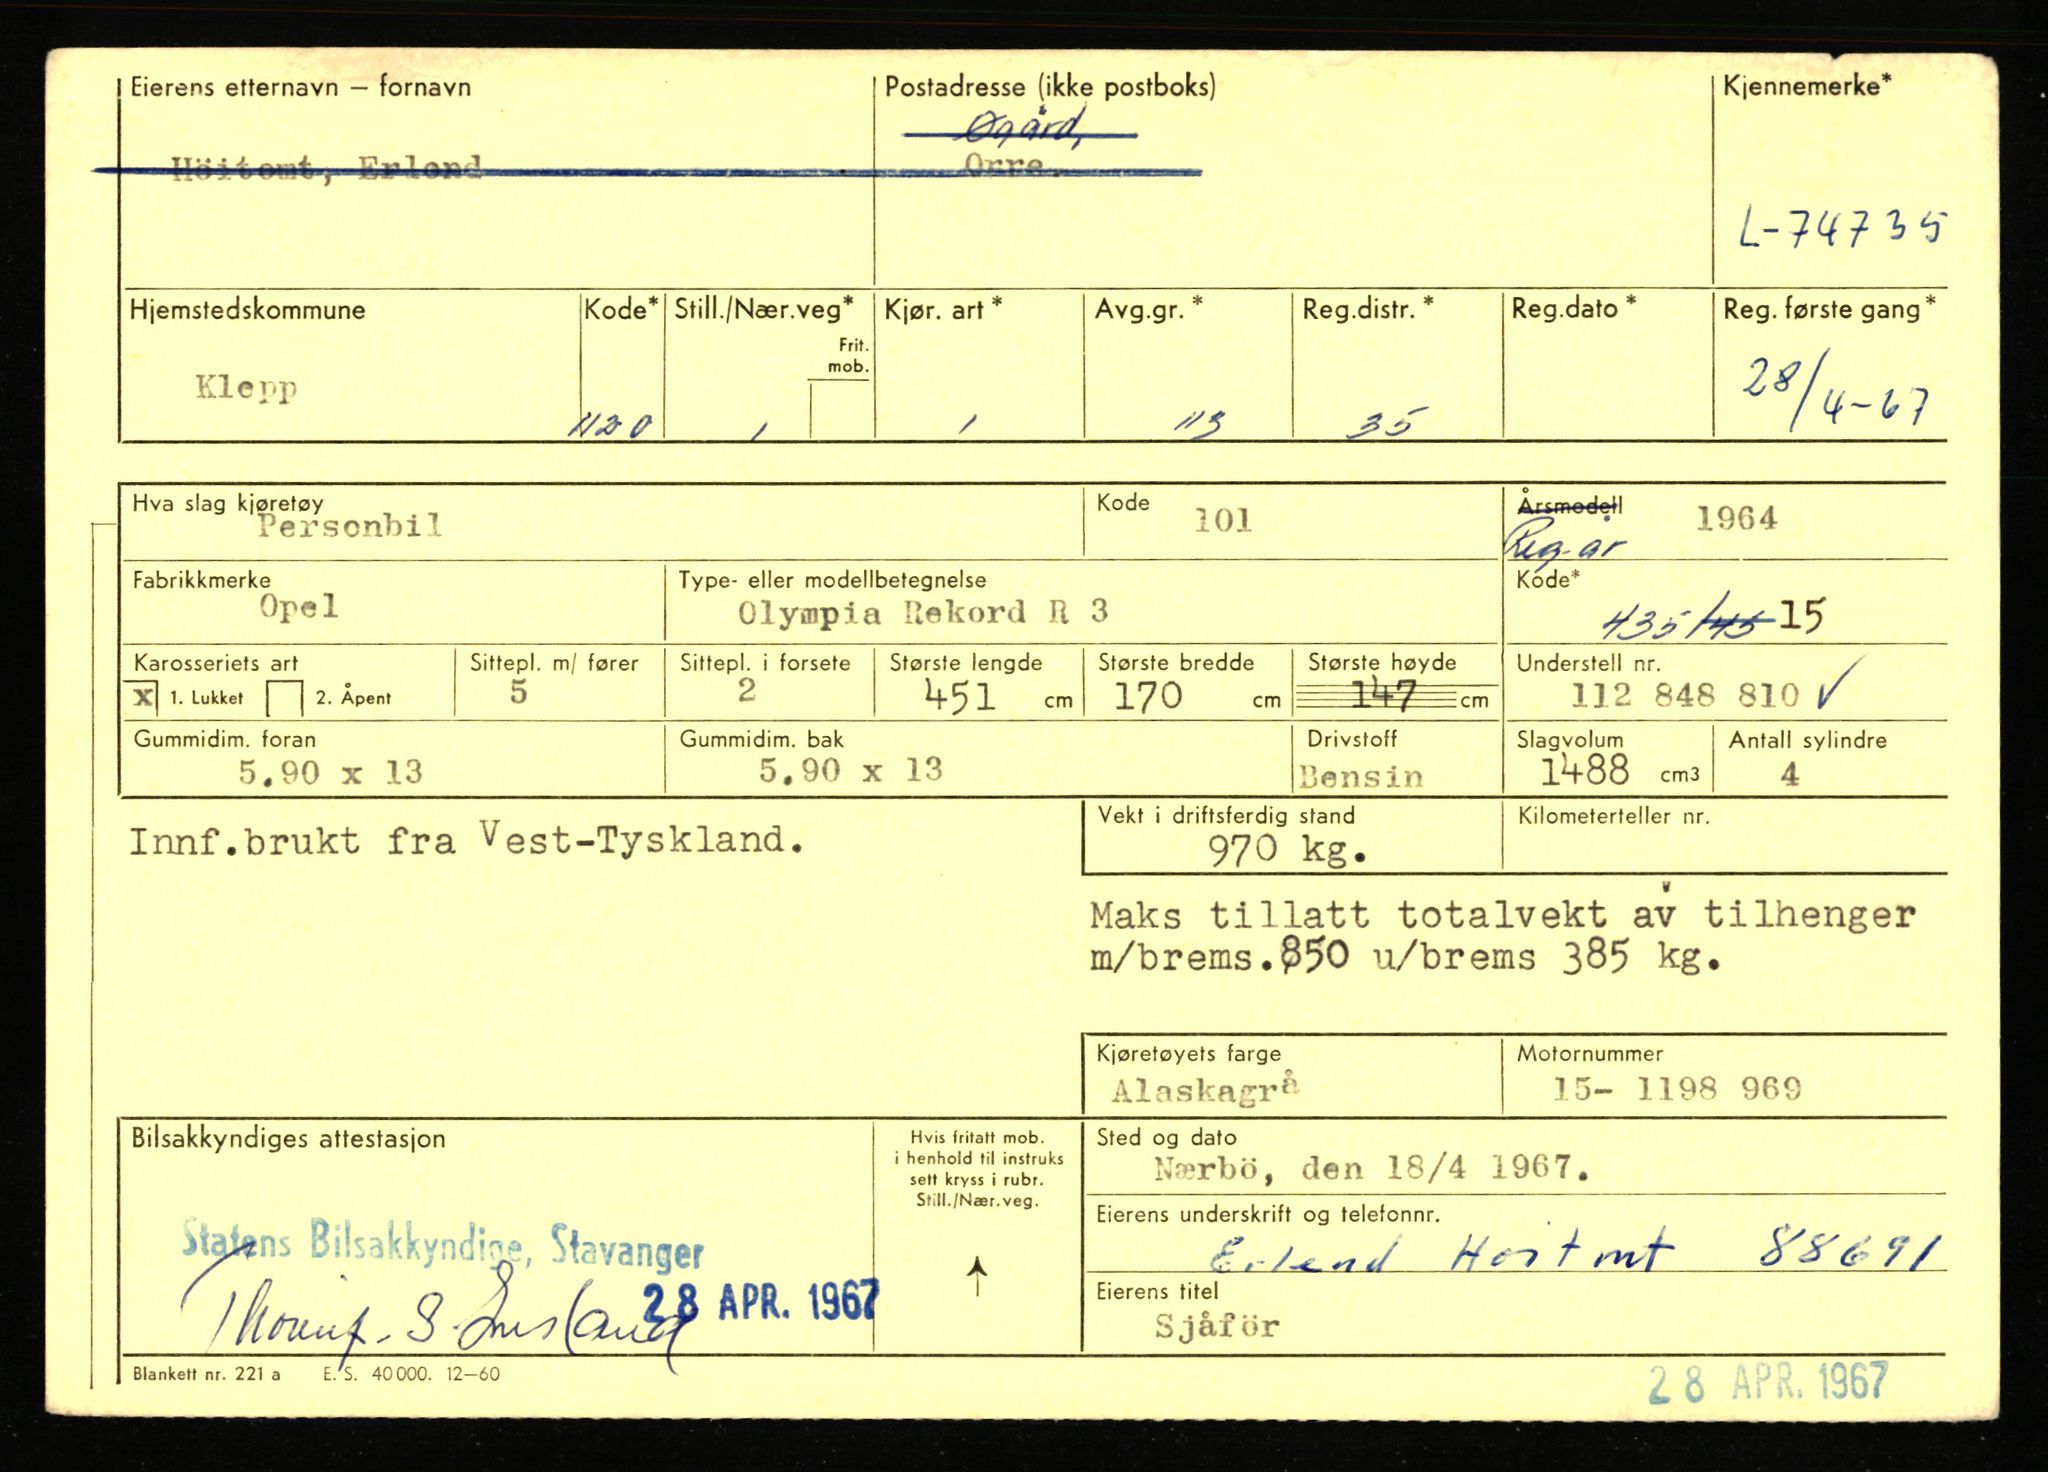 Eierens etternavn – fornavn
Postadresse (ikke postboks)
Kjennemerke*
Øgård,
Höitomt, Erlend
Orre.
L-74735
Hjemstedskommune
Kode*
Still./Nær.veg*
Kjør. art*
Avg.gr.*
Reg.distr.*
Reg.dato*
Reg. første gang*
Frit.
mob.
Klepp
1120
1
1
113
35
28/4-67
Hva slag kjøretøy
Personbil
Kode
101
Årsmodell
1964
Reg-år
Fabrikkmerke
Opel
Type- eller modellbetegnelse
Olympia Rekord R 3
Kode*
435/45 15
Karosseriets art
x 1. Lukket 2. Åpent
Sittepl. m/ fører
5
Sittepl. i forsete
2
Største lengde
451 cm
Største bredde
170 cm
Største høyde
147 cm
Understell nr.
112 848 810 ✓
Gummidim. foran
5.90 x 13
Gummidim. bak
5.90 x 13
Drivstoff
Bensin
Slagvolum
1488 cm3
Antall sylindre
4
Innf.brukt fra Vest-Tyskland.
Vekt i driftsferdig stand
970 kg.
Kilometerteller nr.
Maks tillatt totalvekt av tilhenger
m/brems.850 u/brems 385 kg.
Kjøretøyets farge
Alaskagrå
Motornummer
15- 1198 969
Bilsakkyndiges attestasjon
Hvis fritatt mob.
i henhold til instruks
sett kryss i rubr.
Still./Nær.veg.
Sted og dato
Nærbö, den 18/4 1967.
Statens Bilsakkyndige, Stavanger
28 APR. 1967
Eierens underskrift og telefonnr.
Erlend Høitomt 88691
Eierens titel
Sjåför
Blankett nr. 221 a E. S. 40 000. 12–60
28 APR. 1967